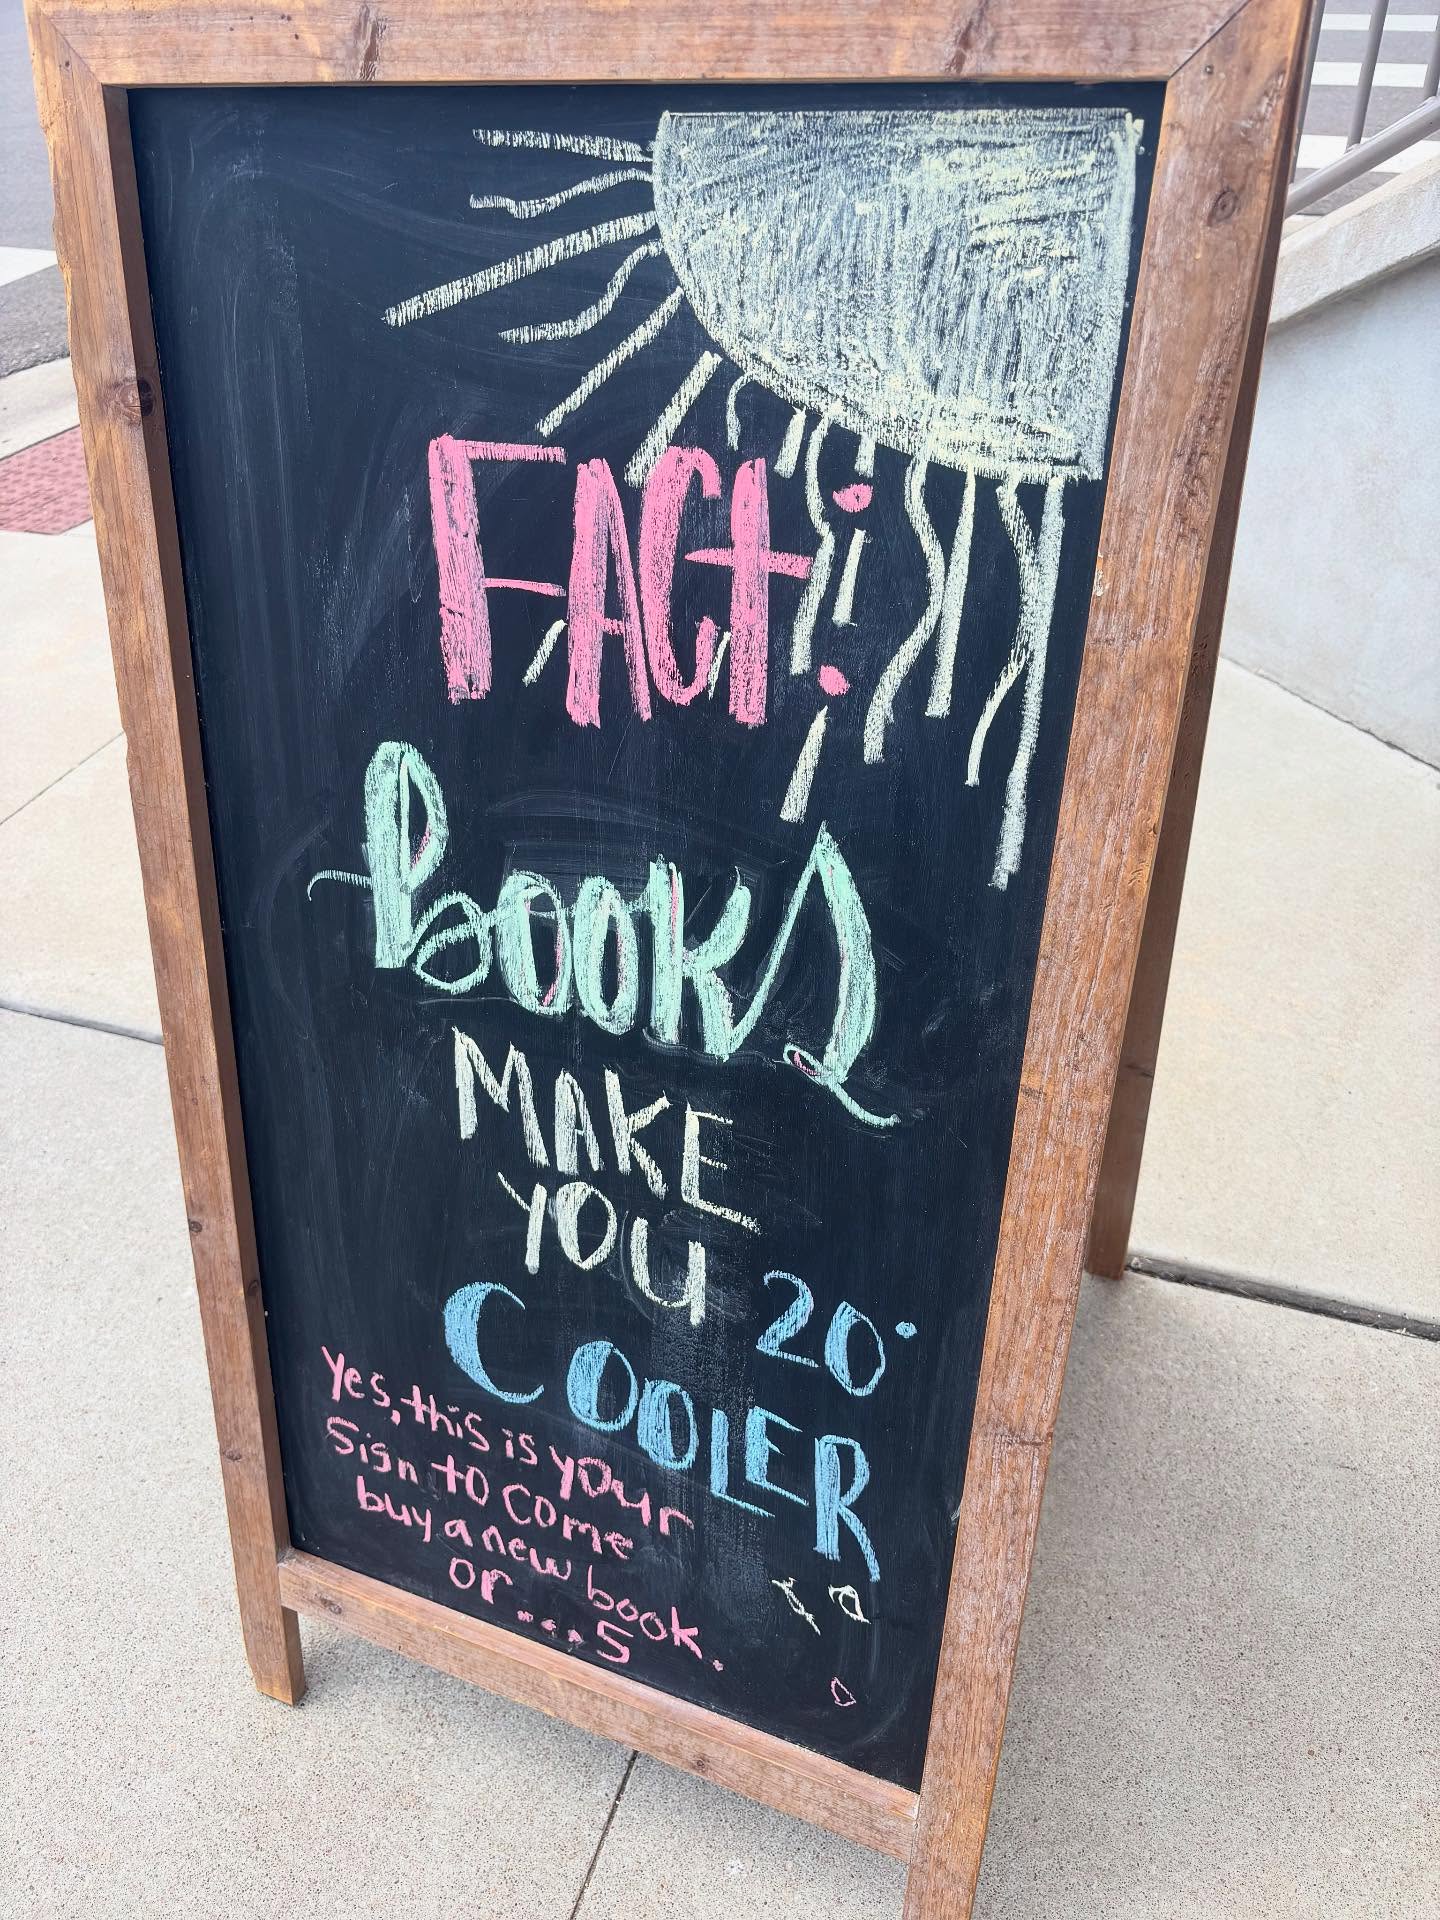 FACT:
Books
MAKE
YOU
20°
COOLER
Yes, this is your
sign to come
buy a new book.
or...5